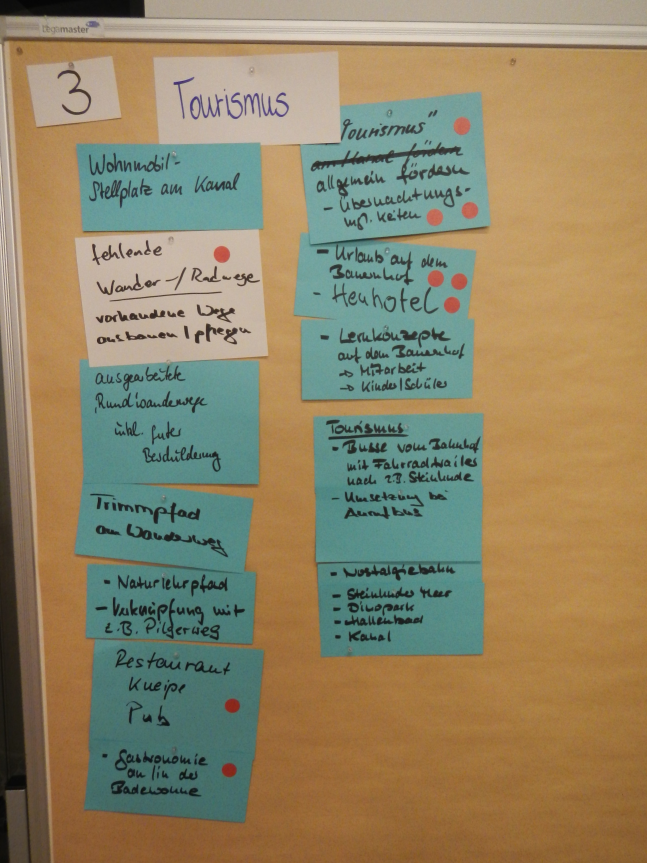 legamaster
3
Tourismus
Wohnmobil-
Stellplatz am Kanal
fehlende
Wander-/Radwege
vorhandene Wege
ausbauen / pflegen
ausgearbeitete
Rundwanderwege
inkl. guter
Beschilderung
Trimmpfad
am Wanderweg
- Naturlehrpfad
- Verknüpfung mit
z.B. Pilgerweg
Restaurant
Kneipe
Pub
- Gastronomie
an/in der
Badewonne
"Tourismus"
am Kanal fördern
allgemein fördern
- Übernachtungs-
mgl. keiten
- Urlaub auf dem
Bauernhof
- Heuhotel
- Lernkonzepte
auf dem Bauernhof
→ Mitarbeit
→ Kinder/Schüler
Tourismus
- Busse vom Bahnhof
mit Fahrradtrailer
nach z.B. Steinhude
- Umsetzung bei
Anrufbus
- Nostalgiebahn
- Steinhuder Meer
- Dinopark
- Hallenbad
- Kanal